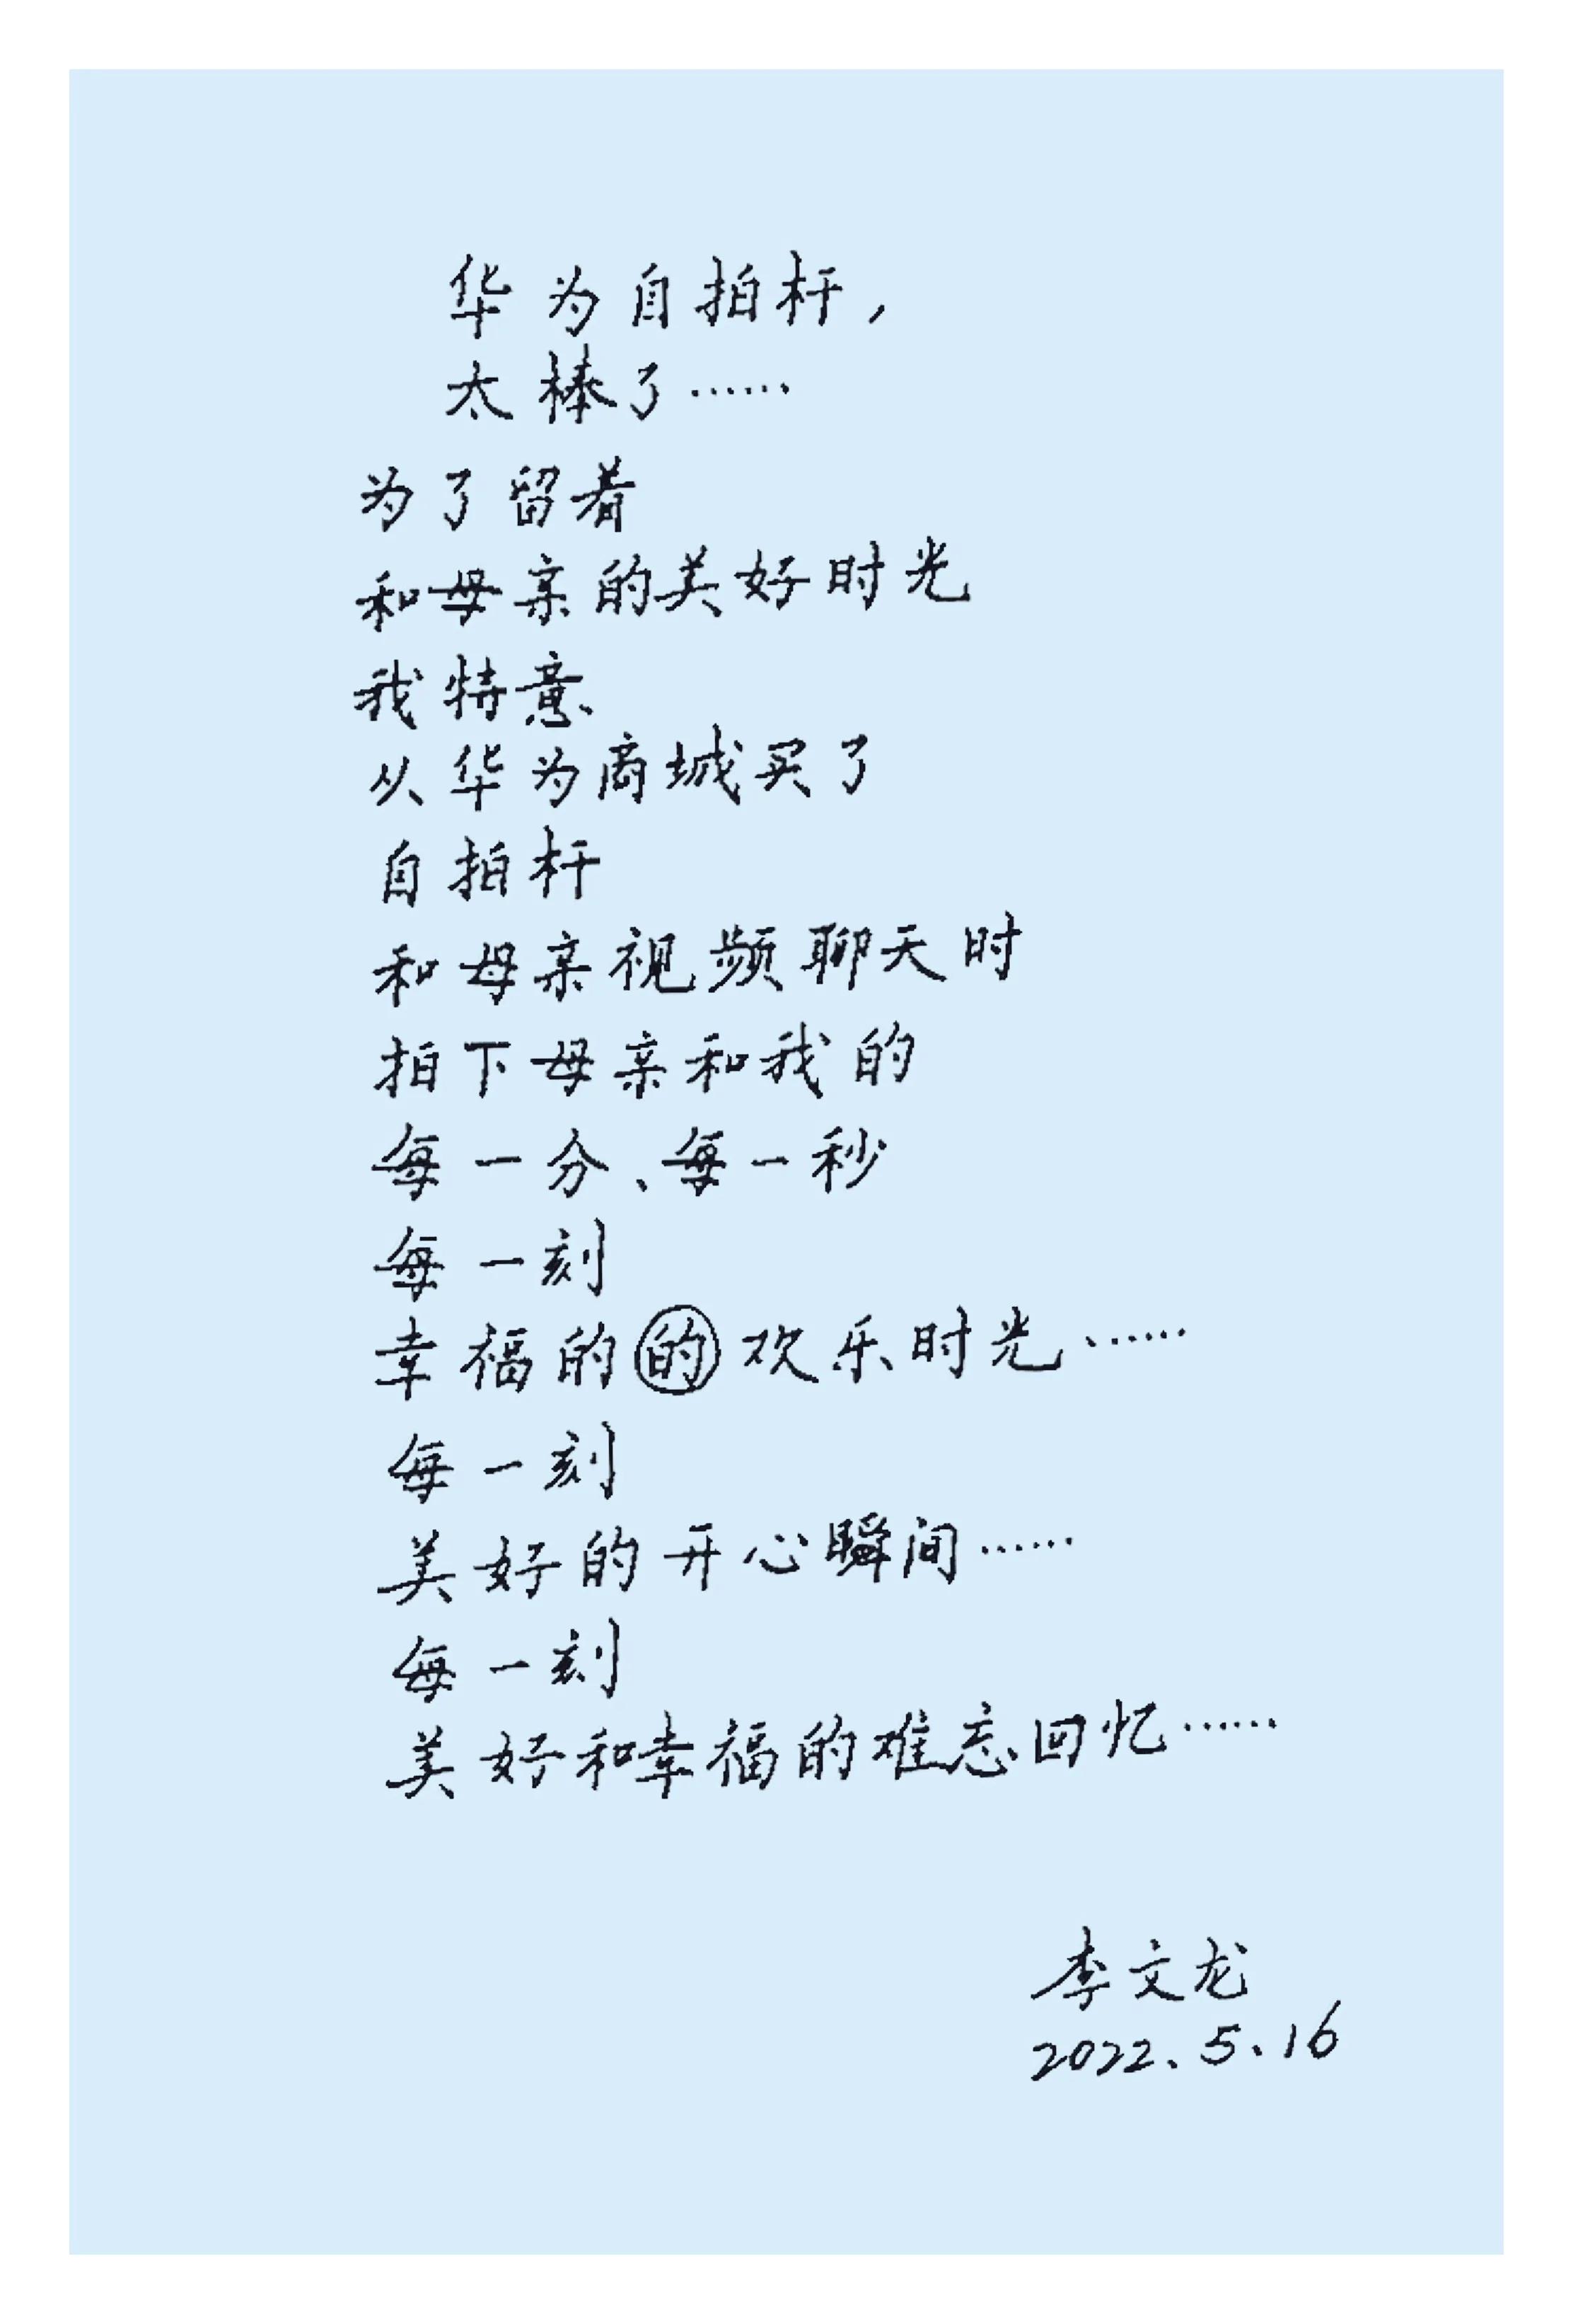 华为自拍杆，
太棒了……
为了留着
和母亲的美好时光
我特意
从华为商城买了
自拍杆
和母亲视频聊天时
拍下母亲和我的
每一分、每一秒
每一刻
幸福的的欢乐时光……
每一刻
美好的开心瞬间……
每一刻
美好和幸福的难忘回忆……
李文龙
2022.5.16